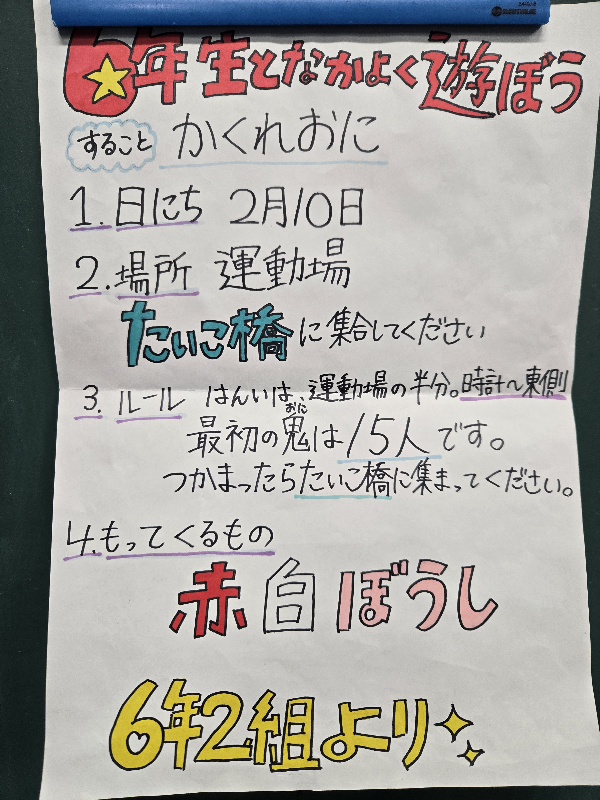 6年生となかよく遊ぼう
すること かくれおに
1.日にち 2月10日
2.場所 運動場
たいこ橋に集合してください
3.ルール はんいは、運動場の半分。時計〜東側
最初の鬼(おに)は15人です。
つかまったらたいこ橋に集まってください。
4.もってくるもの
赤白ぼうし
6年2組より